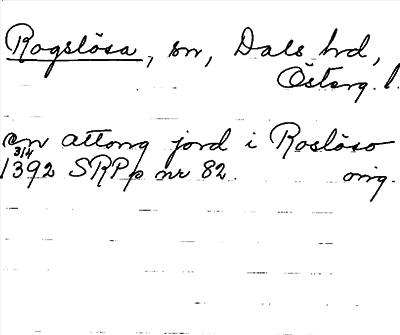 Rogslösa, sn, Dals hrd,
Österg. l.
en attong jord i Roslöso
1392 3/4 SRPp nr 82. orig.